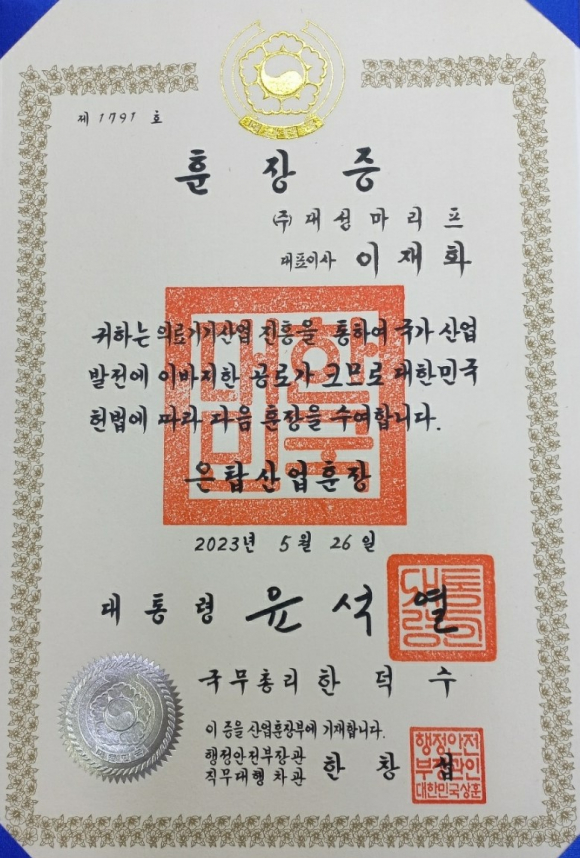 제 1791 호
훈장증
(주) 대성마리프
대표이사 이재화
귀하는 의료기기산업 진흥을 통하여 국가 산업
발전에 이바지한 공로가 크므로 대한민국
헌법에 따라 다음 훈장을 수여합니다.
은탑산업훈장
2023년 5월 26일
대통령 윤석열
국무총리 한덕수
이 증을 산업훈장부에 기재합니다.
행정안전부장관
직무대행 차관 한창섭
행정안전
부장관인
대한민국상훈